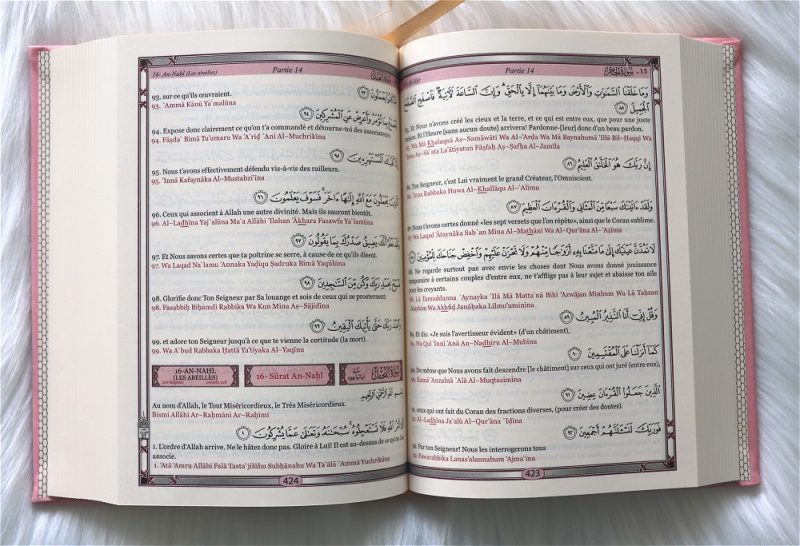 Al-Hijr Partie 14 15 - سورة الحجر
وَمَا خَلَقْنَا السَّمَٰوَٰتِ وَالْأَرْضَ وَمَا بَيْنَهُمَا إِلَّا بِالْحَقِّ وَإِنَّ السَّاعَةَ لَآتِيَةٌ فَاصْفَحِ الصَّفْحَ
الْجَمِيلَ ٨٥
85. Et Nous n'avons créé les cieux et la terre, et ce qui est entre eux, que pour une juste
raison. Et l'Heure [sans aucun doute] arrivera! Pardonne-[leur] donc d'un beau pardon.
85. Wa Mā Khalaqnā As-Samāwāti Wa Al-'Arđa Wa Mā Baynahumā 'Illā Bil-Ĥaqqi Wa
'Inna As-Sā`ata La'ātiyatun Fāşfaĥ Aş-Şafĥa Al-Jamīla
إِنَّ رَبَّكَ هُوَ الْخَلَّٰقُ الْعَلِيمُ ٨٦
86. Ton Seigneur, c'est Lui vraiment le grand Créateur, l'Omniscient.
86. 'Inna Rabbaka Huwa Al-Khallāqu Al-`Alīmu
وَلَقَدْ ءَاتَيْنَٰكَ سَبْعًا مِّنَ الْمَثَانِي وَالْقُرْءَانَ الْعَظِيمَ ٨٧
87. Nous t'avons certes donné «les sept versets que l'on répète», ainsi que le Coran sublime.
87. Wa Laqad 'Ātaynāka Sab`an Mina Al-Mathānī Wa Al-Qur'āna Al-`Ažīma
لَا تَمُدَّنَّ عَيْنَيْكَ إِلَىٰ مَا مَتَّعْنَا بِهِ أَزْوَٰجًا مِّنْهُمْ وَلَا تَحْزَنْ عَلَيْهِمْ وَاخْفِضْ جَنَاحَكَ لِلْمُؤْمِنِينَ ٨٨
88. Ne regarde surtout pas avec envie les choses dont Nous avons donné jouissance
temporaire à certains couples d'entre eux, ne t'afflige pas à leur sujet et abaisse ton aile
pour les croyants.
88. Lā Tamuddanna `Aynayka 'Ilá Mā Matta`nā Bihi 'Azwājan Minhum Wa Lā Taĥzan
`Alayhim Wa Akhfiđ Janāĥaka Lilmu'uminīna
وَقُلْ إِنِّي أَنَا النَّذِيرُ الْمُبِينُ ٨٩
89. Et dis: «Je suis l'avertisseur évident» (d'un châtiment),
89. Wa Qul 'Innī 'Anā An-Nadhīru Al-Mubīnu
كَمَا أَنزَلْنَا عَلَى الْمُقْتَسِمِينَ ٩٠
90. De même que Nous avons fait descendre [le châtiment] sur ceux qui ont juré (entre eux),
90. Kamā 'Anzalnā `Alá Al-Muqtasimīna
الَّذِينَ جَعَلُوا الْقُرْءَانَ عِضِينَ ٩١
91. ceux qui ont fait du Coran des fractions diverses, (pour créer des doutes).
91. Al-Ladhīna Ja`alū Al-Qur'āna `Iđīna
فَوَرَبِّكَ لَنَسْـَٔلَنَّهُمْ أَجْمَعِينَ ٩٢
92. Par ton Seigneur! Nous les interrogerons tous
92. Fawarabbika Lanas'alannahum 'Ajma`īna
423
16- An-Naĥl (Les abeilles) Partie 14
كَانُوا يَعْمَلُونَ ٩٣
93. sur ce qu'ils œuvraient.
93. `Ammā Kānū Ya`malūna
بِمَا تُؤْمَرُ وَأَعْرِضْ عَنِ الْمُشْرِكِينَ ٩٤
94. Expose donc clairement ce qu'on t'a commandé et détourne-toi des associateurs.
94. Fāşda` Bimā Tu'umaru Wa 'A`riđ `Ani Al-Muchrikīna
كَفَيْنَٰكَ الْمُسْتَهْزِءِينَ ٩٥
95. Nous t'avons effectivement défendu vis-à-vis des railleurs.
95. 'Innā Kafaynāka Al-Mustahzi'īna
يَجْعَلُونَ مَعَ اللَّهِ إِلَٰهًا ءَاخَرَ فَسَوْفَ يَعْلَمُونَ ٩٦
96. Ceux qui associent à Allah une autre divinité. Mais ils sauront bientôt.
96. Al-Ladhīna Yaj`alūna Ma`a Allāhi 'Ilahan 'Ākhara Fasawfa Ya`lamūna
نَعْلَمُ أَنَّكَ يَضِيقُ صَدْرُكَ بِمَا يَقُولُونَ ٩٧
97. Et Nous savons certes que ta poitrine se serre, à cause de ce qu'ils disent.
97. Wa Laqad Na`lamu 'Annaka Yađīqu Şadruka Bimā Yaqūlūna
فَسَبِّحْ بِحَمْدِ رَبِّكَ وَكُن مِّنَ السَّٰجِدِينَ ٩٨
98. Glorifie donc Ton Seigneur par Sa louange et sois de ceux qui se prosternent.
98. Fasabbiĥ Biĥamdi Rabbika Wa Kun Mina As-Sājidīna
وَاعْبُدْ رَبَّكَ حَتَّىٰ يَأْتِيَكَ الْيَقِينُ ٩٩
99. et adore ton Seigneur jusqu'à ce que te vienne la certitude (la mort).
99. Wa A`bud Rabbaka Ĥattá Ya'tiyaka Al-Yaqīnu
16-AN-NAHL
(LES ABEILLES) 16- Sūrat An-Naĥl
pré-hégirien versets 128
Au nom d'Allah, le Tout Miséricordieux, le Très Miséricordieux.
بسم الله الرحمن الرحيم
Bismi Allāhi Ar-Raĥmāni Ar-Raĥīmi
أَمْرُ اللَّهِ فَلَا تَسْتَعْجِلُوهُ سُبْحَٰنَهُ وَتَعَٰلَىٰ عَمَّا يُشْرِكُونَ ١
1. L'ordre d'Allah arrive. Ne le hâtez donc pas. Gloire à Lui! Il est au-dessus de ce qu'on Lui
associe.
1. 'Atá 'Amru Allāhi Falā Tasta`jilūhu Subĥānahu Wa Ta`ālá `Ammā Yuchrikūna
424